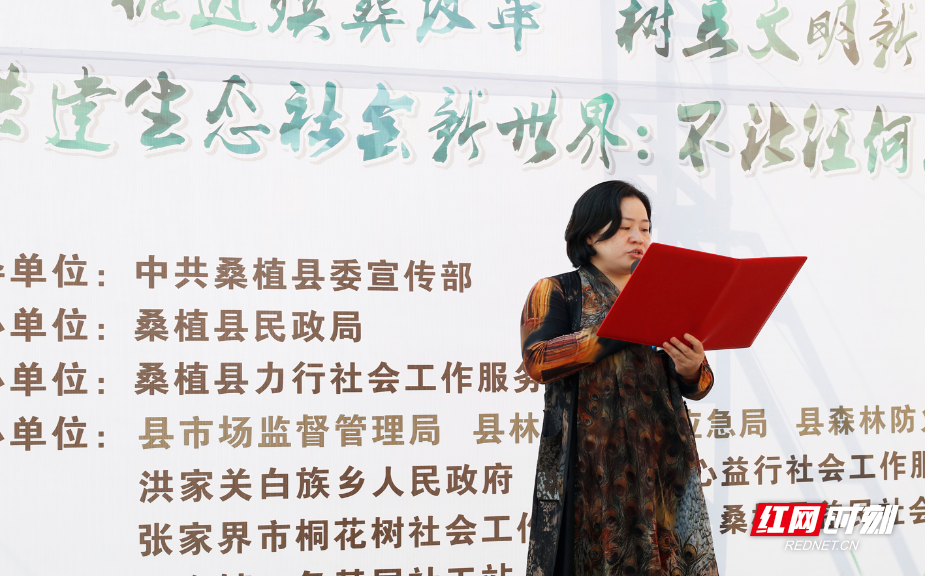 推进殡葬改革 树立文明新
共建生态社会新世界：不让任何
单位：中共桑植县委宣传部
单位：桑植县民政局
单位：桑植县力行社会工作服务
单位：县市场监督管理局 县林 应急局 县森林防火
洪家关白族乡人民政府 心益行社会工作服
张家界市桐花树社会工作 桑 社会
红网时刻
REDNET.CN